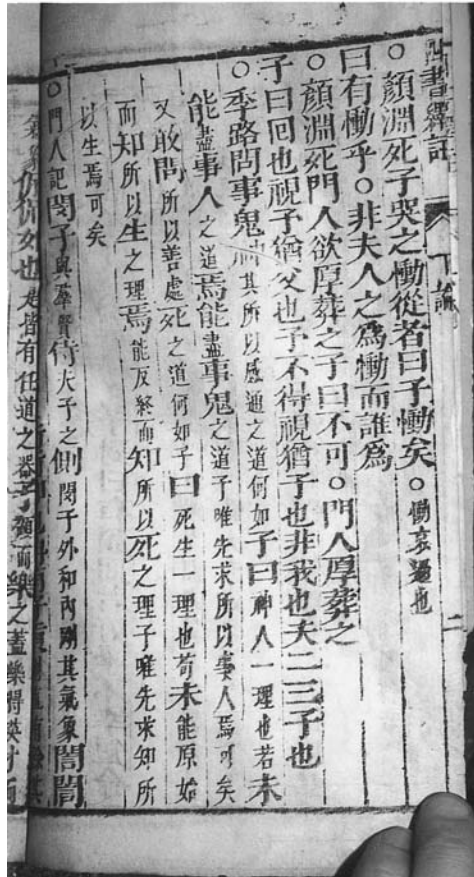 四書繹註 下論
○顏淵死子哭之慟從者曰子慟矣○慟哀過也
曰有慟乎○非夫人之爲慟而誰爲
○顏淵死門人欲厚葬之子曰不可○門人厚葬之
子曰回也視予猶父也予不得視猶子也非我也夫二三子也
○季路問事鬼神其所以感通之道何如子曰神人一理也若未
能盡事人之道焉能盡事鬼之道子唯先求所以事人焉可矣
又敢問所以善處死之道何如子曰死生一理也苟未能原始
而知所以生之理焉能反終而知所以死之理子唯先求知所
以生焉可矣
○門人記閔子與羣賢侍夫子之側閔子外和內剛其氣象誾誾
二
氣象侃侃如也是皆有任道之器子顏而樂之蓋樂得英才而